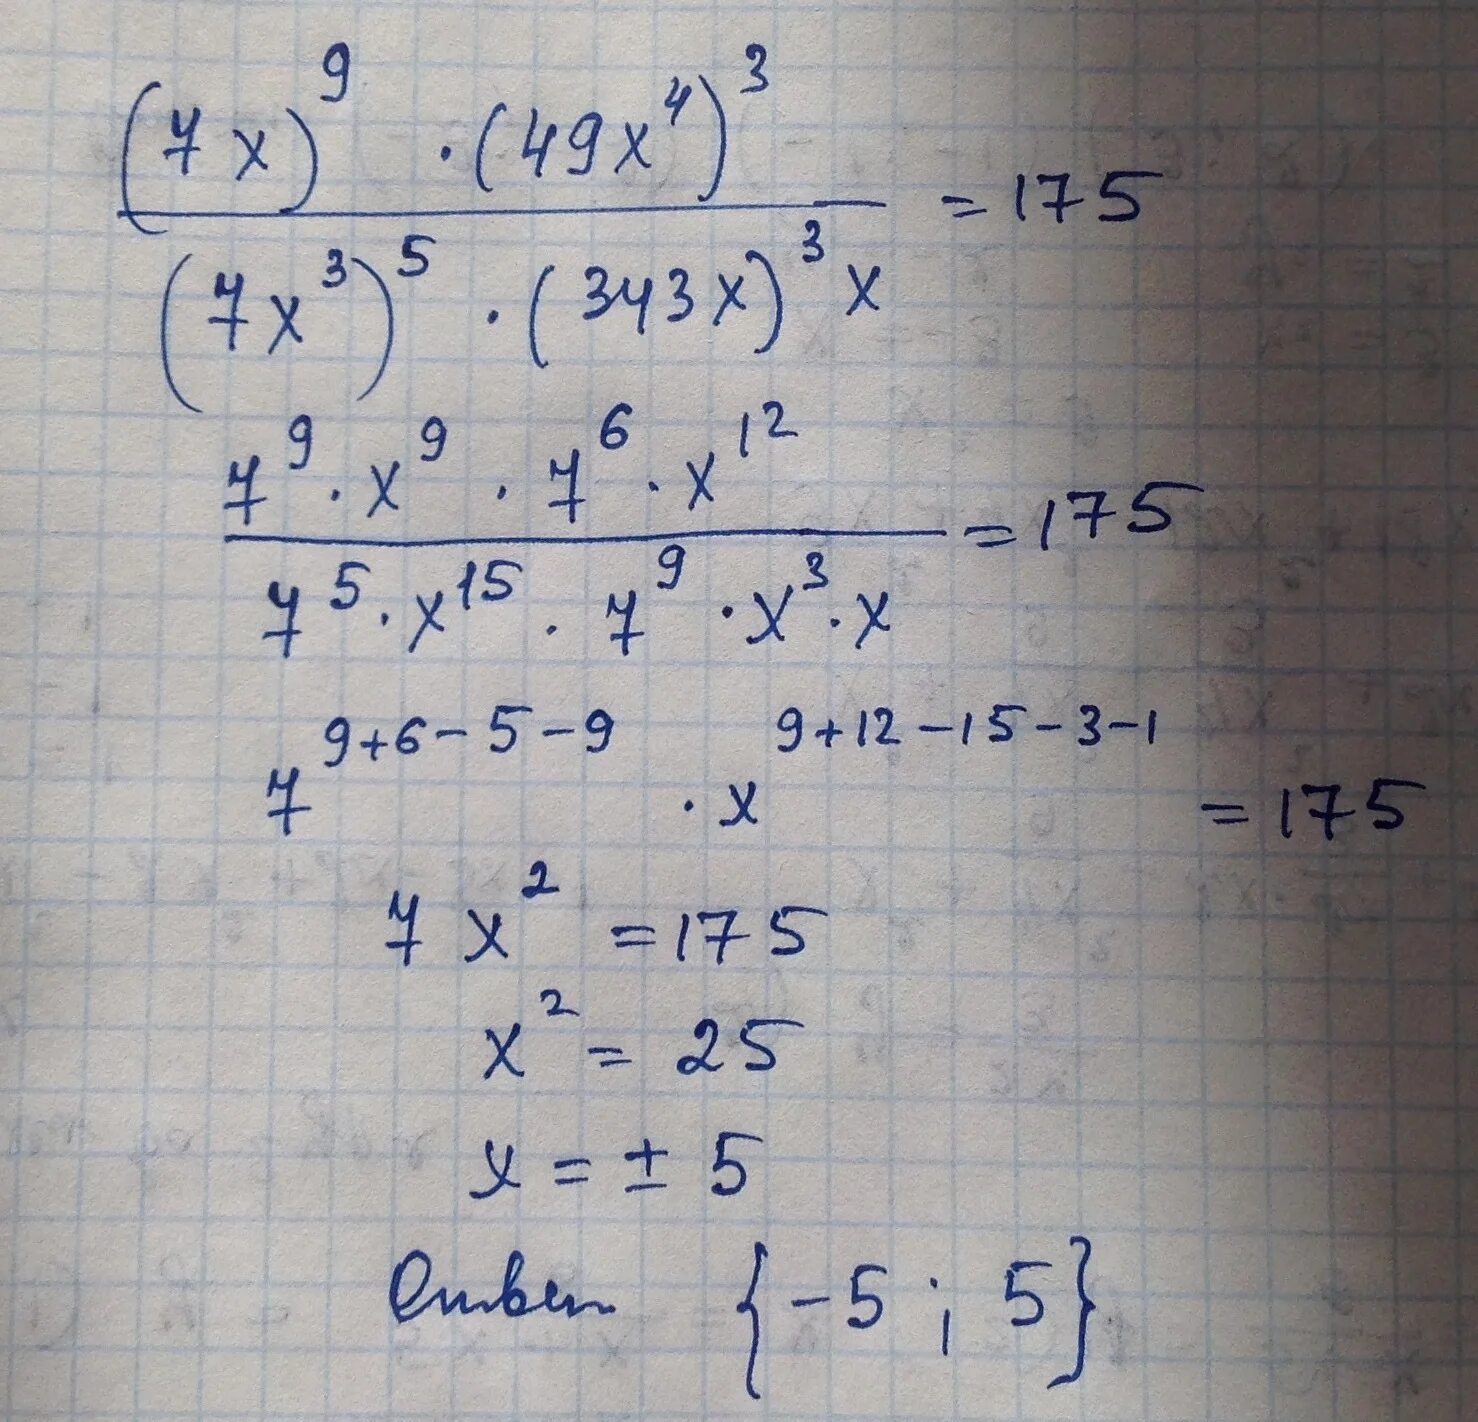 (7x)^9 · (49x^4)^3 / (7x^3)^5 · (343x)^3 x = 175
7^9 · x^9 · 7^6 · x^12 / 7^5 · x^15 · 7^9 · x^3 · x = 175
7^9+6-5-9 · x^9+12-15-3-1 = 175
7x^2 = 175
x^2 = 25
x = ± 5
Ответ {-5 ; 5}